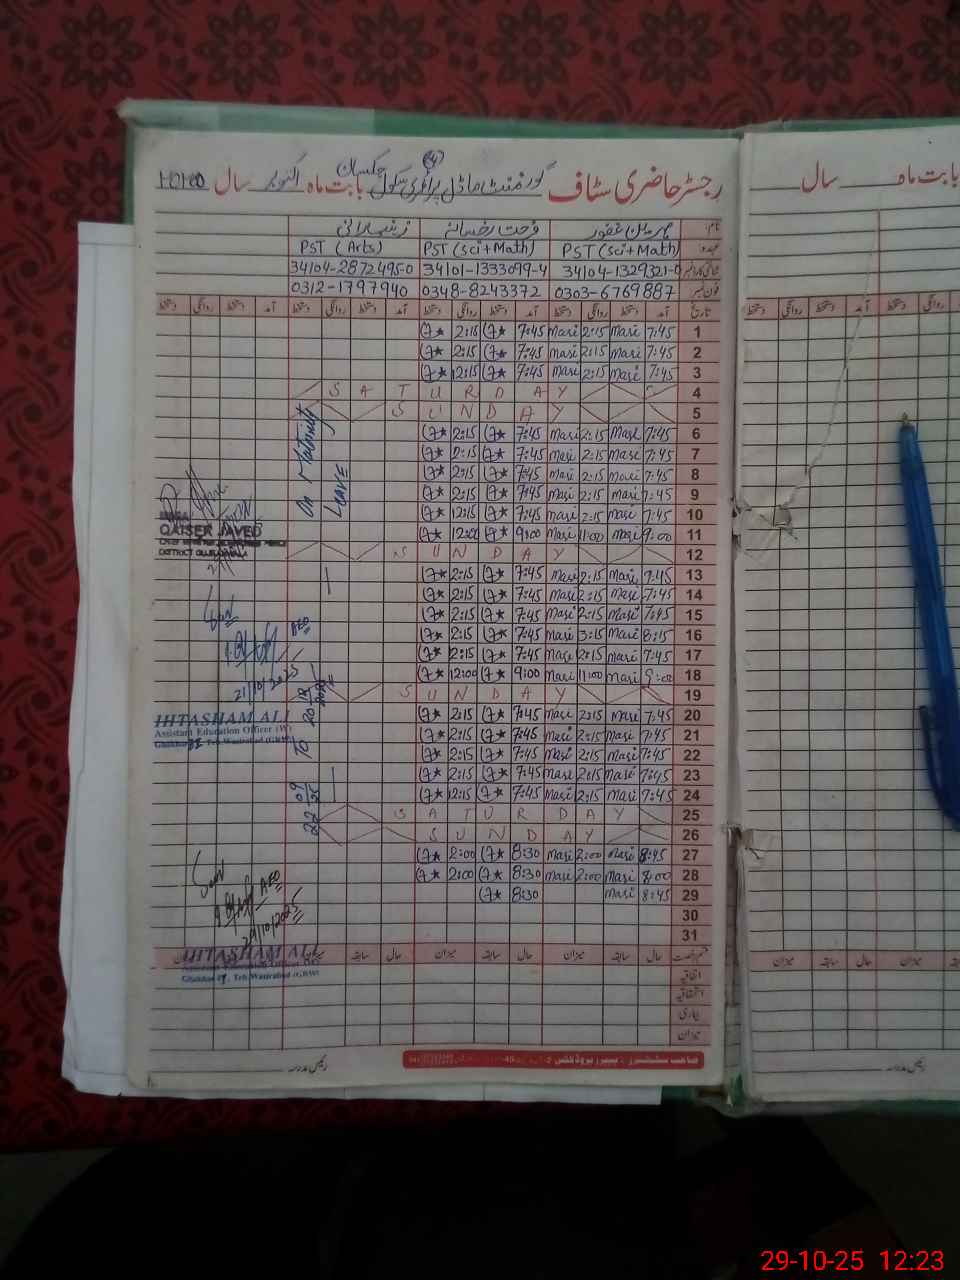 رجسٹر حاضری سٹاف گورنمنٹ ماڈل پرائمری سکول چکسان بابت ماہ اکتوبر سال
بابت ماہ سال
نام فرحت رخسانہ
عہدہ PST (Sci+Math) PST (Sci+Math) PST (Arts)
34104-1329321-0 34101-1333099-4 34104-2872495-0
فون نمبر 0303-6769887 0348-8243372 0312-1797940
تاریخ آمد دستخط روانگی دستخط آمد دستخط روانگی دستخط آمد دستخط روانگی دستخط
1 7:45 Masi 2:15 Masi 7:45 2:15
2 7:45 Masi 2:15 Masi 7:45 2:15
3 7:45 Masi 2:15 Masi 7:45 12:15
4 SATURDAY
5 SUNDAY
6 7:45 Masi 2:15 Masi 7:45 2:15
7 7:45 Masi 2:15 Masi 7:45 2:15
8 7:45 Masi 2:15 Masi 7:45 2:15
9 7:45 Masi 2:15 Masi 7:45 2:15
10 7:45 Masi 2:15 Masi 7:45 12:15
11 9:00 Masi 11:00 Masi 9:00 12:00
12 SUNDAY
13 7:45 Masi 2:15 Masi 7:45 2:15
14 7:45 Masi 2:15 Masi 7:45 2:15
15 7:45 Masi 2:15 Masi 7:45 2:15
16 8:15 Masi 3:15 Masi 7:45 2:15
17 7:45 Masi 2:15 Masi 7:45 2:15
18 9:00 Masi 11:00 Masi 9:00 12:00
19 SUNDAY
20 7:45 Masi 2:15 Masi 7:45 2:15
21 7:45 Masi 2:15 Masi 7:45 2:15
22 7:45 Masi 2:15 Masi 7:45 2:15
23 7:45 Masi 2:15 Masi 7:45 2:15
24 7:45 Masi 2:15 Masi 7:45 12:15
25 SATURDAY
26 SUNDAY
27 8:45 Masi 2:00 Masi 8:30 2:00
28 8:00 Masi 2:00 Masi 8:30 2:00
29 8:45 Masi 8:30
30
31
On Maternity
Leave
22-09-25 TO 20-12-2025
QAISER JAVED
21/10/2025
AEO
IHTASHAM ALI
Assistant Education Officer (W)
AEO
29/10/2025
IHTASHAM ALI
حال سابقہ میزان حال سابقہ میزان حال سابقہ
اتفاقیہ
استحقاقیہ
بیماری
میزان
رئیس مدرسہ
رئیس مدرسہ
29-10-25 12:23